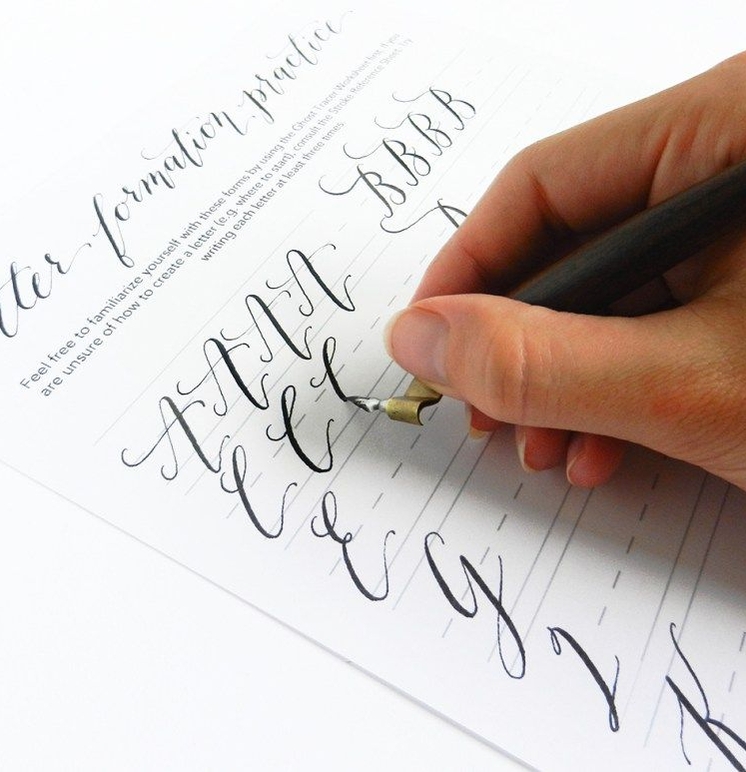 tter formation practice
Feel free to familiarize yourself with these forms by using the Ghost Tracer Worksheet first. If you
are unsure of how to create a letter (e.g. where to start), consult the Stroke Reference Sheet. Try
writing each letter at least three times.
A A A A B B B B
C C C D
E
G
I
K